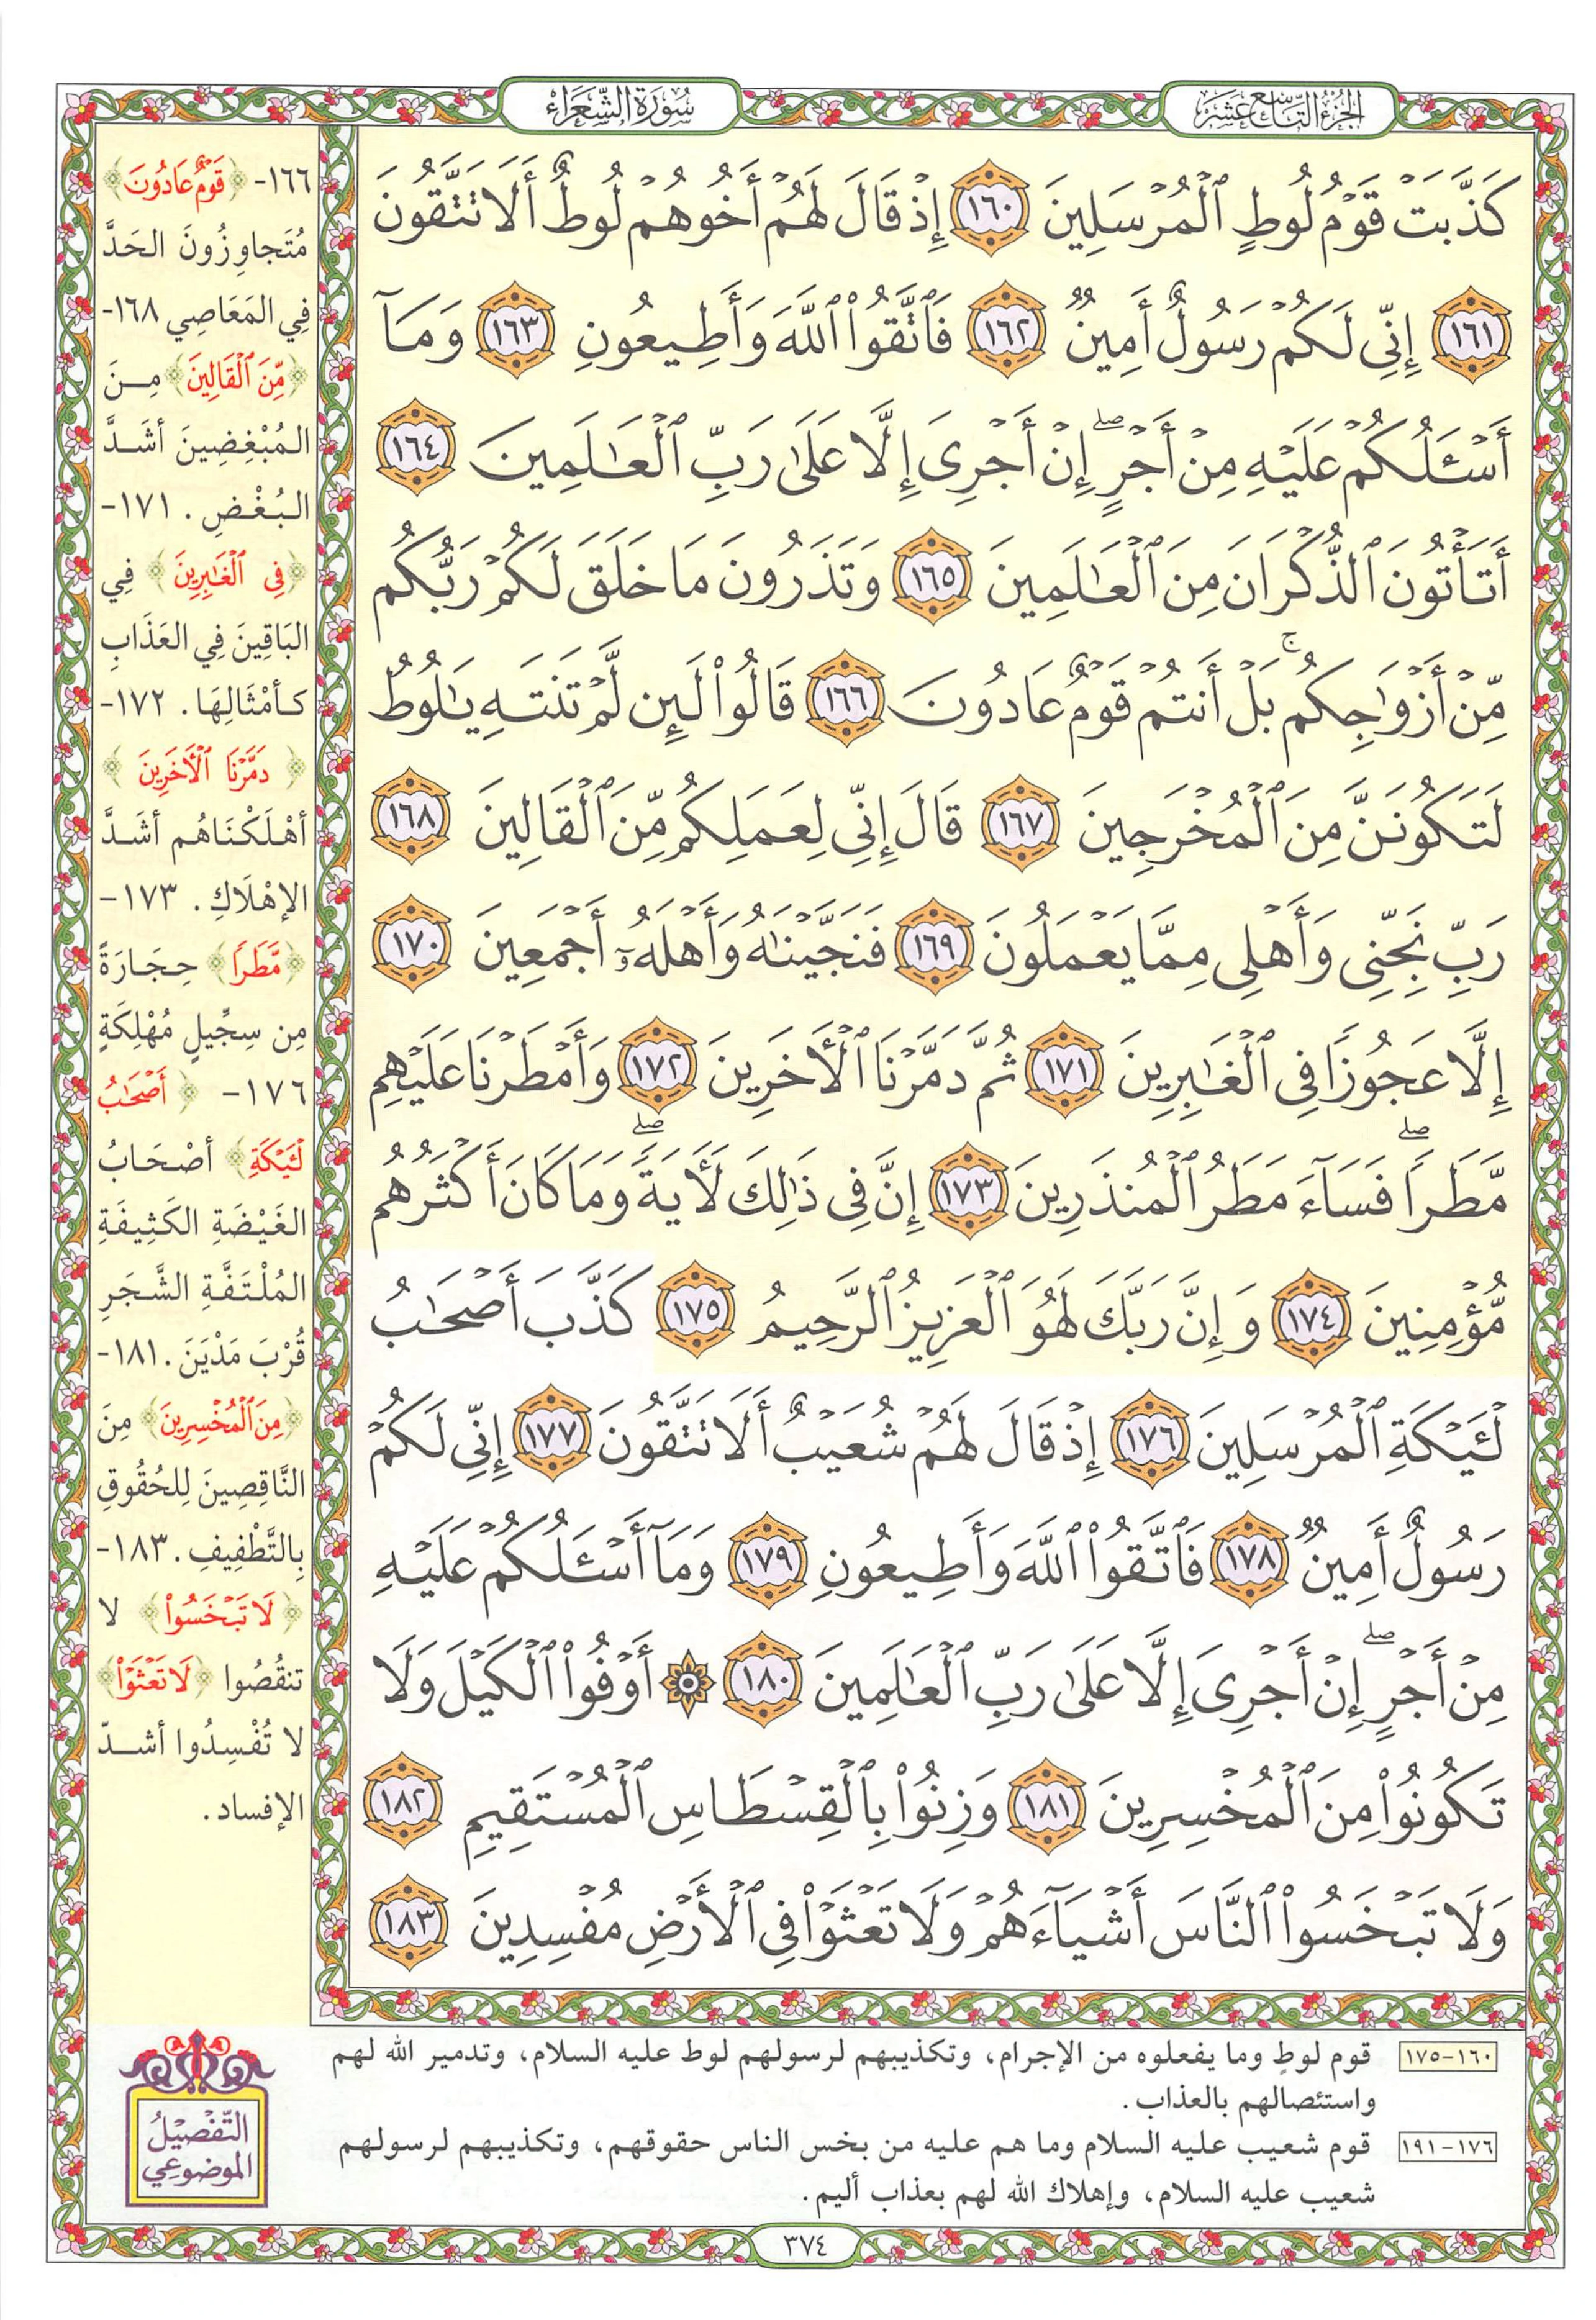 الجزء التاسع عشر
سورة الشعراء
كَذَّبَتْ قَوْمُ لُوطٍ ٱلْمُرْسَلِينَ ١٦٠ إِذْ قَالَ لَهُمْ أَخُوهُمْ لُوطٌ أَلَا تَتَّقُونَ
١٦١ إِنِّى لَكُمْ رَسُولٌ أَمِينٌ ١٦٢ فَٱتَّقُوا۟ ٱللَّهَ وَأَطِيعُونِ ١٦٣ وَمَآ
أَسْـَٔلُكُمْ عَلَيْهِ مِنْ أَجْرٍ ۖ إِنْ أَجْرِىَ إِلَّا عَلَىٰ رَبِّ ٱلْعَـٰلَمِينَ ١٦٤
أَتَأْتُونَ ٱلذُّكْرَانَ مِنَ ٱلْعَـٰلَمِينَ ١٦٥ وَتَذَرُونَ مَا خَلَقَ لَكُمْ رَبُّكُم
مِّنْ أَزْوَٰجِكُم ۚ بَلْ أَنتُمْ قَوْمٌ عَادُونَ ١٦٦ قَالُوا۟ لَئِن لَّمْ تَنتَهِ يَـٰلُوطُ
لَتَكُونَنَّ مِنَ ٱلْمُخْرَجِينَ ١٦٧ قَالَ إِنِّى لِعَمَلِكُم مِّنَ ٱلْقَالِينَ ١٦٨
رَبِّ نَجِّنِى وَأَهْلِى مِمَّا يَعْمَلُونَ ١٦٩ فَنَجَّيْنَـٰهُ وَأَهْلَهُۥٓ أَجْمَعِينَ ١٧٠
إِلَّا عَجُوزًا فِى ٱلْغَـٰبِرِينَ ١٧١ ثُمَّ دَمَّرْنَا ٱلْـَٔاخَرِينَ ١٧٢ وَأَمْطَرْنَا عَلَيْهِم
مَّطَرًا ۖ فَسَآءَ مَطَرُ ٱلْمُنذَرِينَ ١٧٣ إِنَّ فِى ذَٰلِكَ لَـَٔايَةً ۖ وَمَا كَانَ أَكْثَرُهُم
مُّؤْمِنِينَ ١٧٤ وَإِنَّ رَبَّكَ لَهُوَ ٱلْعَزِيزُ ٱلرَّحِيمُ ١٧٥ كَذَّبَ أَصْحَـٰبُ
لْـَٔيْكَةِ ٱلْمُرْسَلِينَ ١٧٦ إِذْ قَالَ لَهُمْ شُعَيْبٌ أَلَا تَتَّقُونَ ١٧٧ إِنِّى لَكُمْ
رَسُولٌ أَمِينٌ ١٧٨ فَٱتَّقُوا۟ ٱللَّهَ وَأَطِيعُونِ ١٧٩ وَمَآ أَسْـَٔلُكُمْ عَلَيْهِ
مِنْ أَجْرٍ ۖ إِنْ أَجْرِىَ إِلَّا عَلَىٰ رَبِّ ٱلْعَـٰلَمِينَ ١٨٠ ۞ أَوْفُوا۟ ٱلْكَيْلَ وَلَا
تَكُونُوا۟ مِنَ ٱلْمُخْسِرِينَ ١٨١ وَزِنُوا۟ بِٱلْقِسْطَاسِ ٱلْمُسْتَقِيمِ ١٨٢
وَلَا تَبْخَسُوا۟ ٱلنَّاسَ أَشْيَآءَهُمْ وَلَا تَعْثَوْا۟ فِى ٱلْأَرْضِ مُفْسِدِينَ ١٨٣
١٦٦- ﴿قَوْمٌ عَادُونَ﴾
مُتَجاوِزُونَ الحَدَّ
فِي المَعَاصِي ١٦٨-
﴿مِّنَ ٱلْقَالِينَ﴾ مِنَ
المُبْغِضِينَ أشَدَّ
البُغْضِ. ١٧١-
﴿فِى ٱلْغَـٰبِرِينَ﴾ فِي
البَاقِينَ فِي العَذَابِ
كَأمْثَالِهَا. ١٧٢-
﴿دَمَّرْنَا ٱلْـَٔاخَرِينَ﴾
أهْلَكْنَاهُم أشَدَّ
الإهْلَاكِ. ١٧٣-
﴿مَّطَرًا﴾ حِجَارَةً
مِن سِجِّيلٍ مُهْلِكَةٍ
١٧٦- ﴿أَصْحَـٰبُ
لْـَٔيْكَةِ﴾ أصْحَابُ
الغَيْضَةِ الكَثِيفَةِ
المُلْتَفَّةِ الشَّجَرِ
قُرْبَ مَدْيَنَ. ١٨١-
﴿مِنَ ٱلْمُخْسِرِينَ﴾ مِنَ
النَّاقِصِينَ لِلحُقُوقِ
بِالتَّطْفِيفِ. ١٨٣-
﴿لَا تَبْخَسُوا۟﴾ لا
تنقُصُوا ﴿لَا تَعْثَوْا۟﴾
لا تُفْسِدُوا أشدّ
الإفساد.
١٦٠-١٧٥ قوم لوطٍ وما يفعلوه من الإجرام، وتكذيبهم لرسولهم لوط عليه السلام، وتدمير الله لهم
واستئصالهم بالعذاب.
١٧٦-١٩١ قوم شعيب عليه السلام وما هم عليه من بخس الناس حقوقهم، وتكذيبهم لرسولهم
شعيب عليه السلام، وإهلاك الله لهم بعذاب أليم.
التَّفْصِيلُ
الموضوعي
٣٧٤